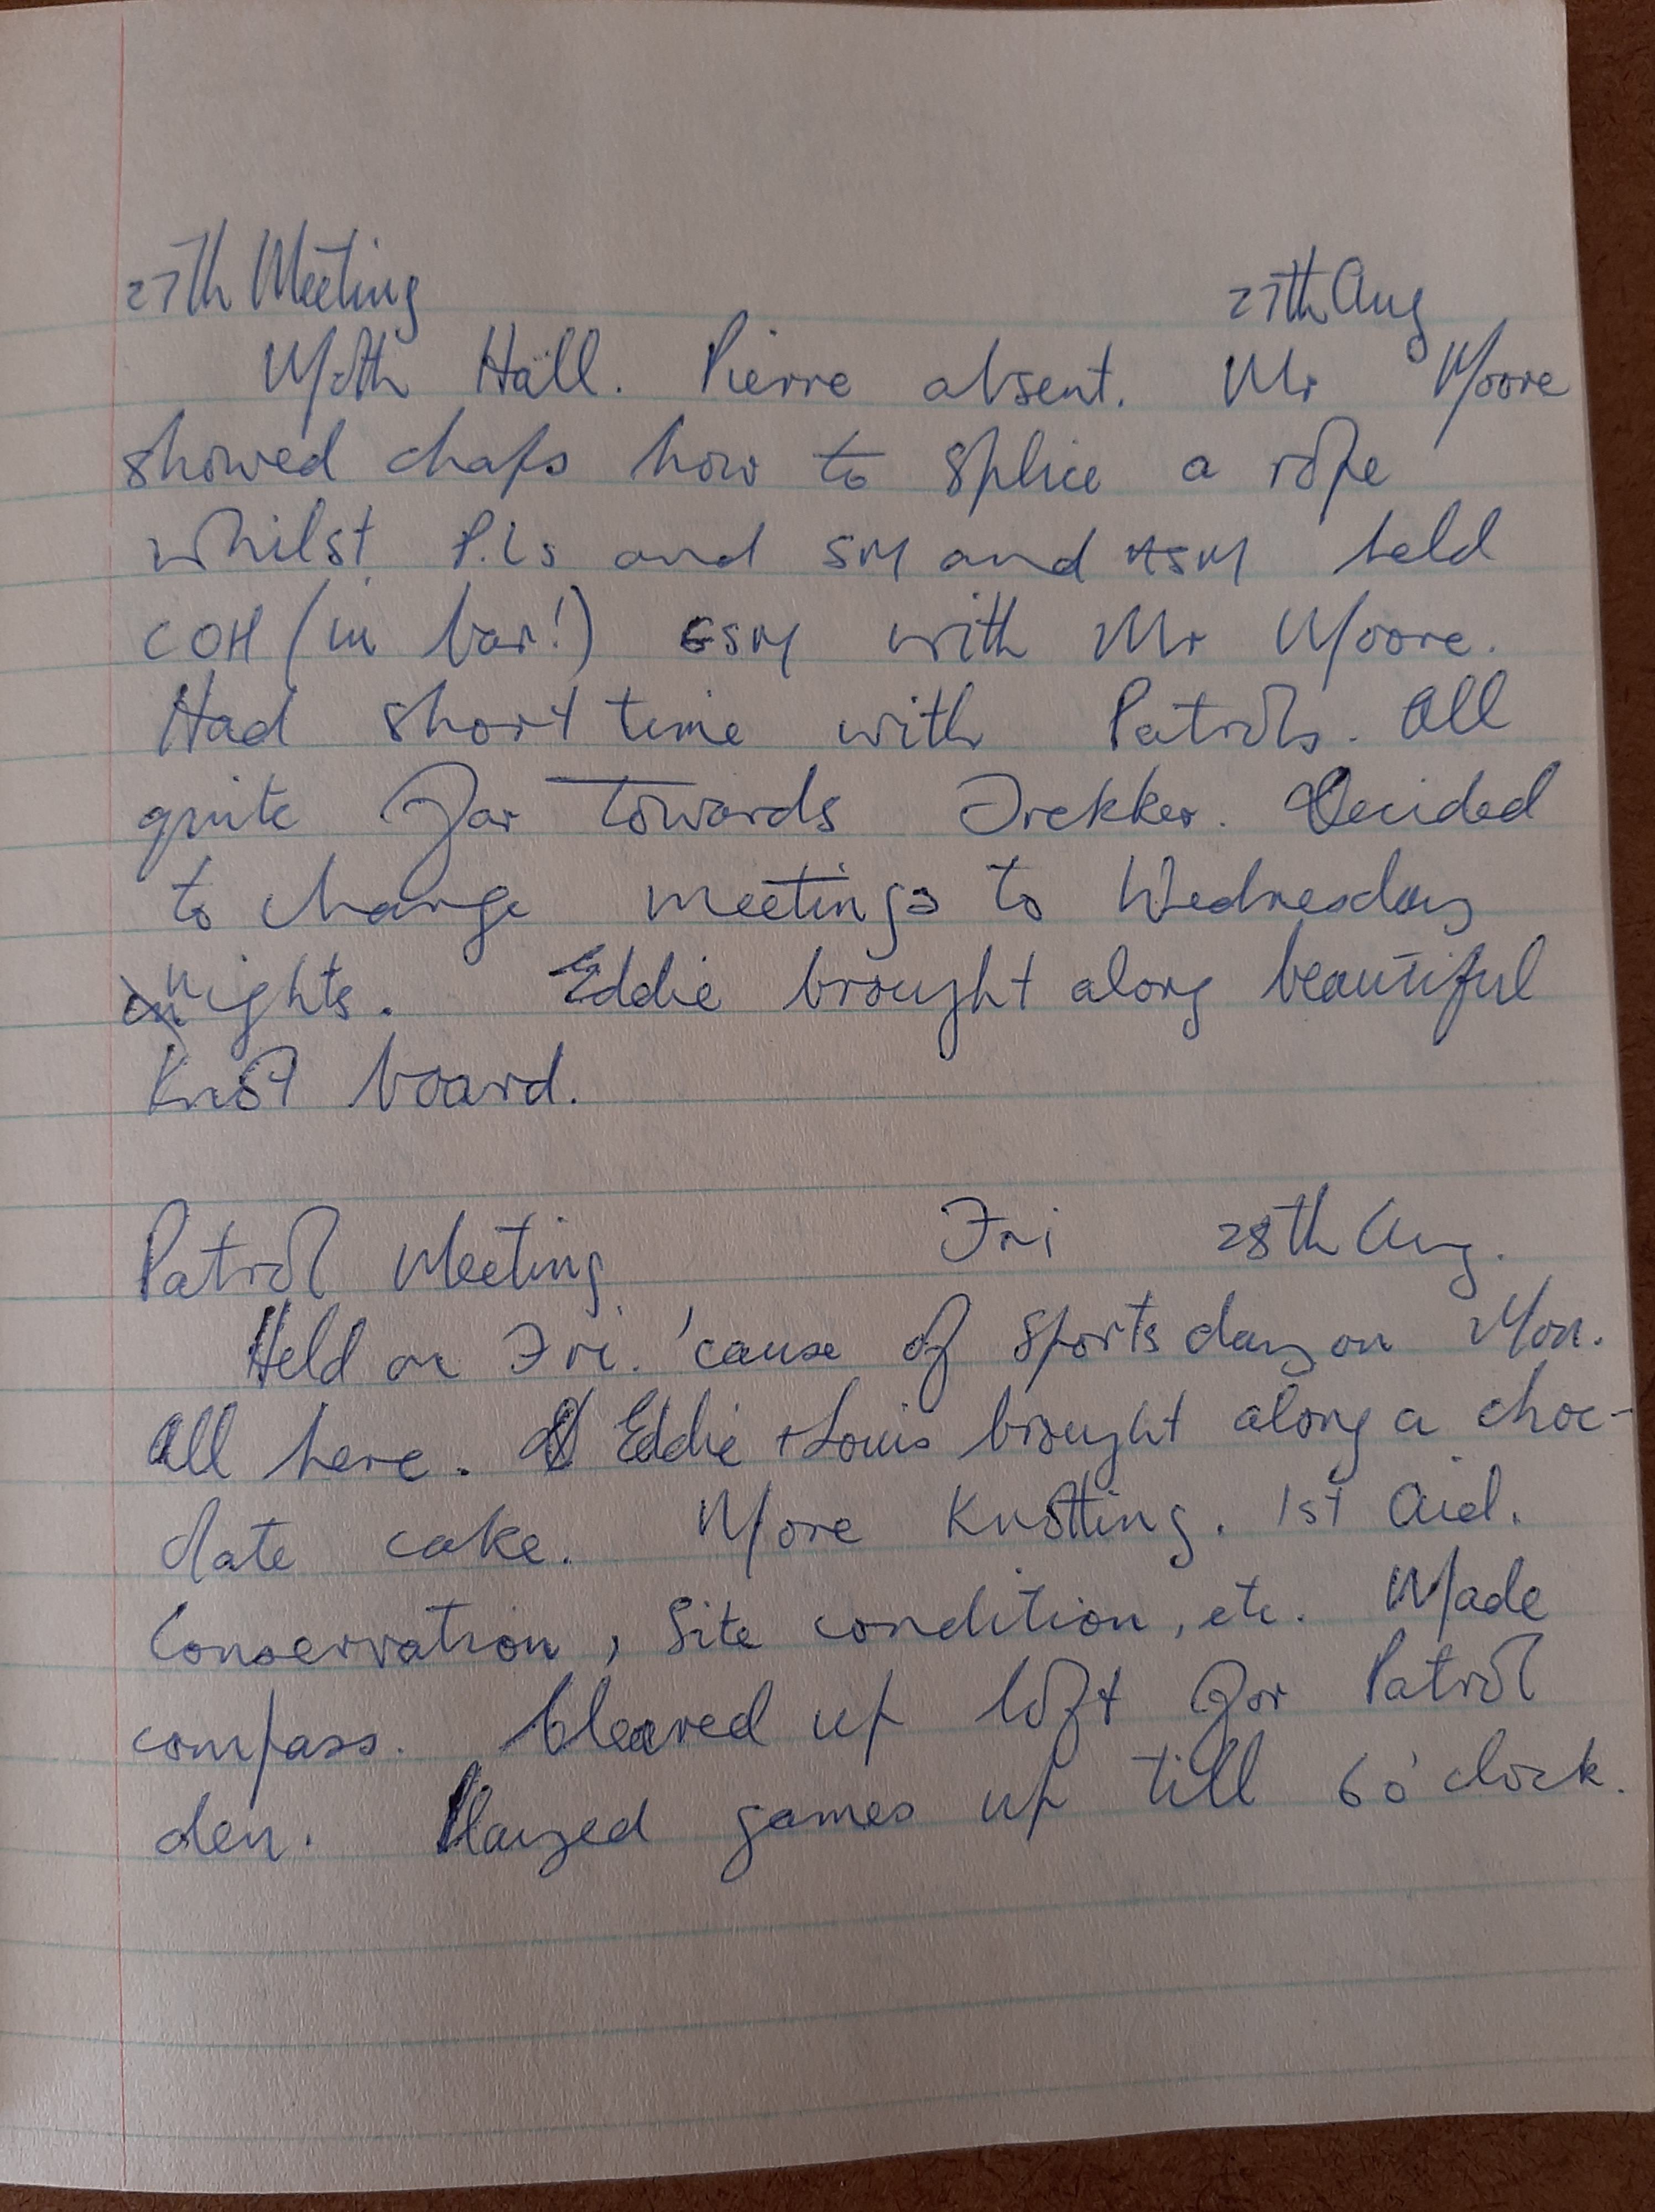 27th Meeting 27th Aug
Moth Hall. Pierre absent. Mr Moore
showed chaps how to splice a rope
whilst P.Ls and SM and ASM held
COH (in bar!) GSM with Mr Moore.
Had short time with Patrols. All
quite far towards Trekker. Decided
to change meetings to Wednesday
nights. Eddie brought along beautiful
Knot board.
Patrol Meeting Fri 28th Aug.
Held on Fri. 'cause of sports day on Mon.
All here. Eddie + Louis brought along a choc-
late cake. More Knotting. 1st Aid.
Conservation, Site condition, etc. Made
compass. Cleared up loft for Patrol
den. Played games up till 6 o'clock.